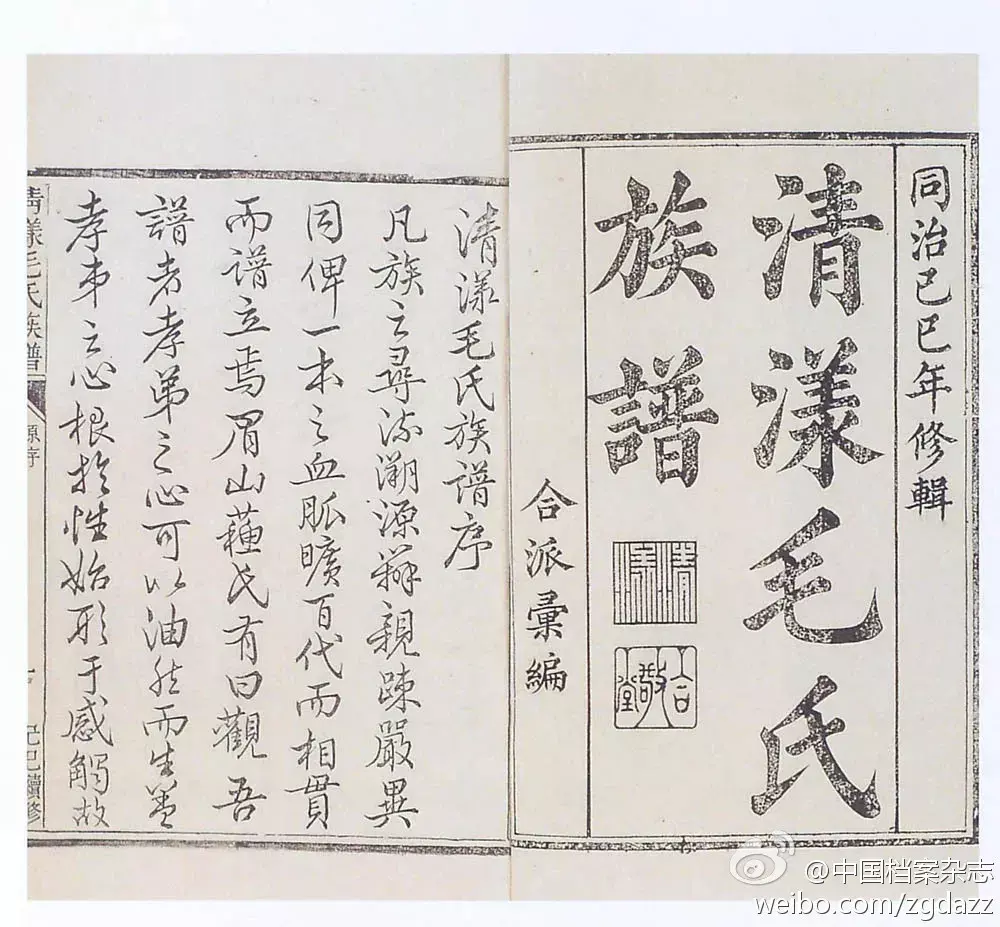 同治己巳年修輯
清漾毛氏
族譜
合派彙編
清漾
合敬堂
清漾毛氏族谱序
凡族之尋流溯源辨親踈嚴異
同俾一本之血脈曠百代而相貫
而譜立焉眉山蘓氏有曰觀吾
譜者孝弟之心可以油然而生蓋
孝弟之心根於性始形于感觸故
清漾毛氏族譜
原序
一
己巳續修
@中国档案杂志
weibo.com/zgdazz